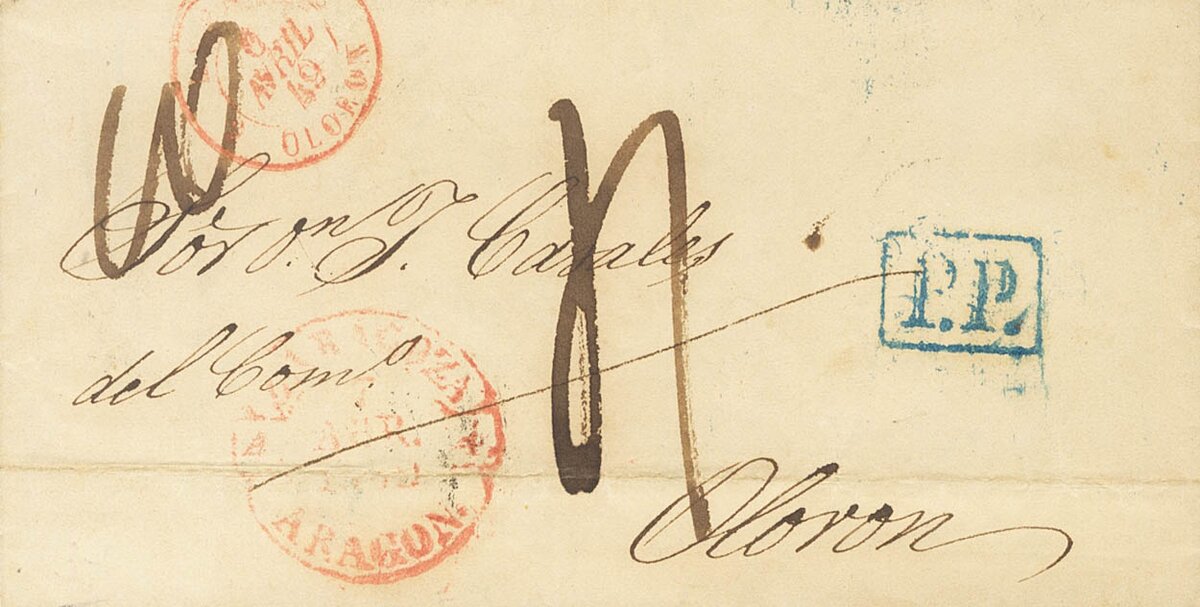 6
AVRIL
49
OLORON
Sor Dn. J. Casales
del Como.
P.P.
ZARAGOZA
ABR.
ARAGON.
Oloron